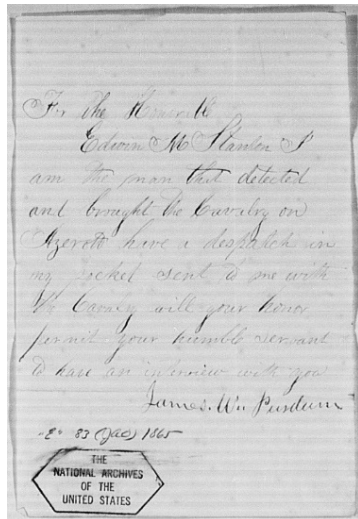 For the Honorable
Edwin M Stanton I
am the man that detected
and brought the Cavalry on
Azeroto have a despatch in
my pocket sent to me with
the Cavalry will your honor
permit your humble servant
to have an interview with you
James. Wm Purdum
"P" 83 (JAO) 1865
THE
NATIONAL ARCHIVES
OF THE
UNITED STATES